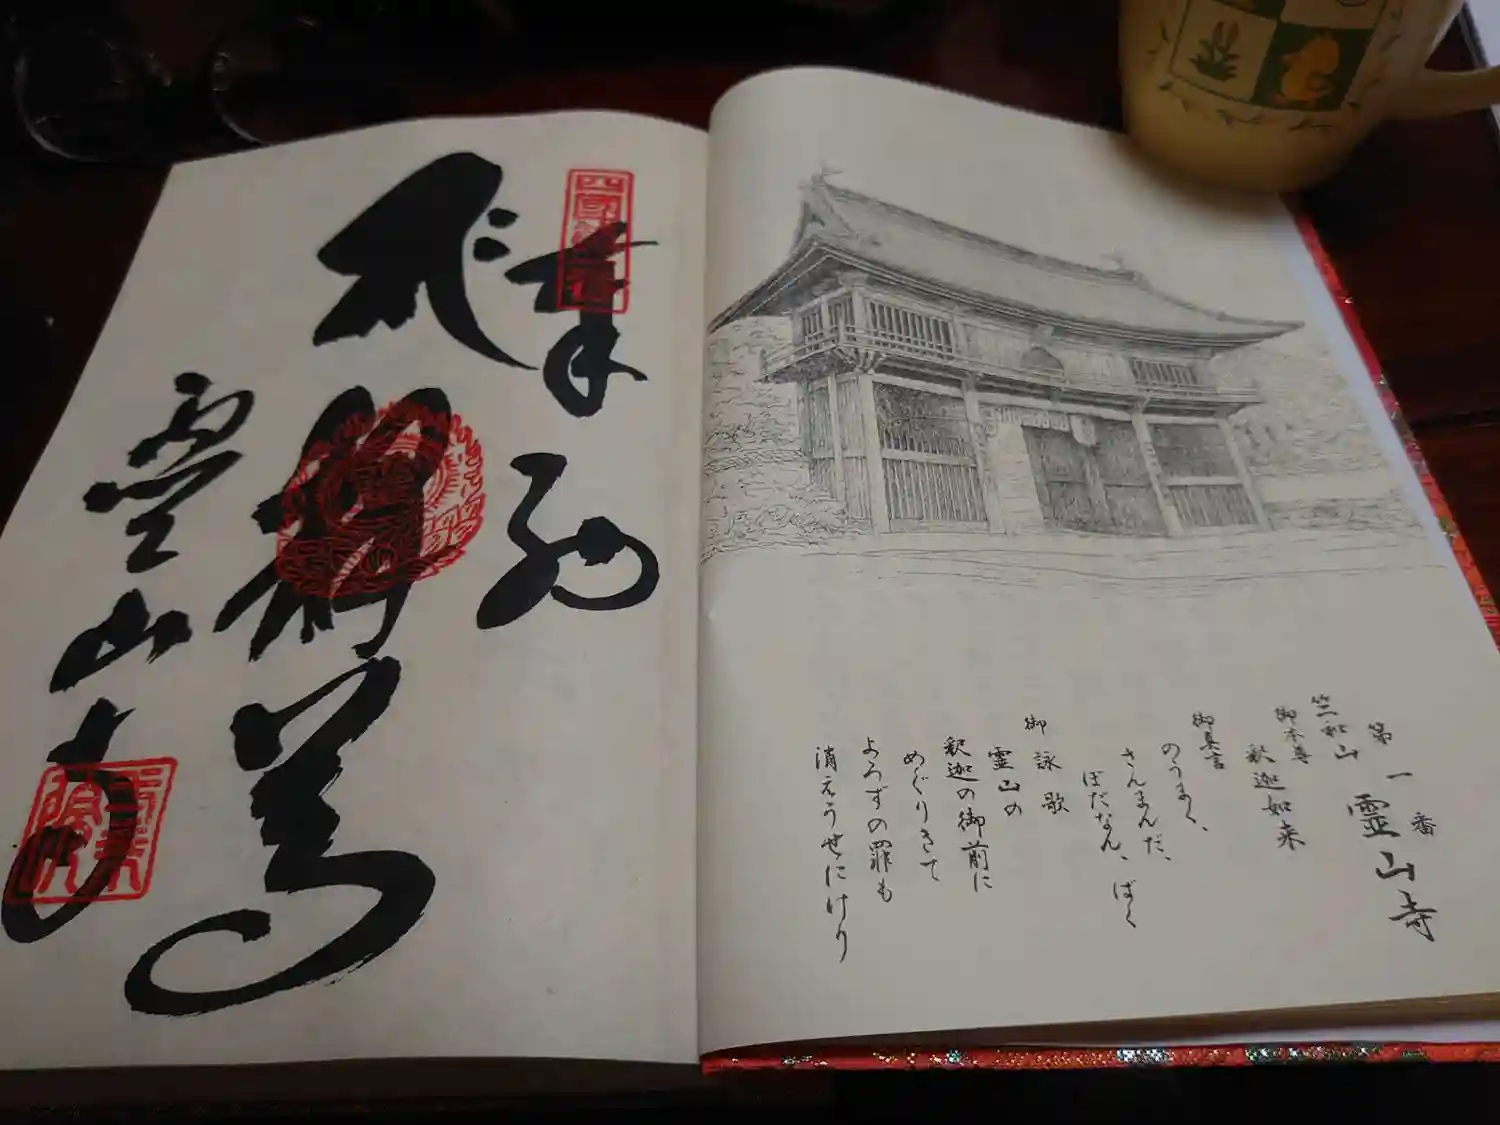 奉納
霊山寺
第一番
竺和山 霊山寺
御本尊
釈迦如来
御真言
のうまく、
さんまんだ、
ぼだなん、ばく
御詠歌
霊山の
釈迦の御前に
めぐりきて
よろずの罪も
消えうせにけり